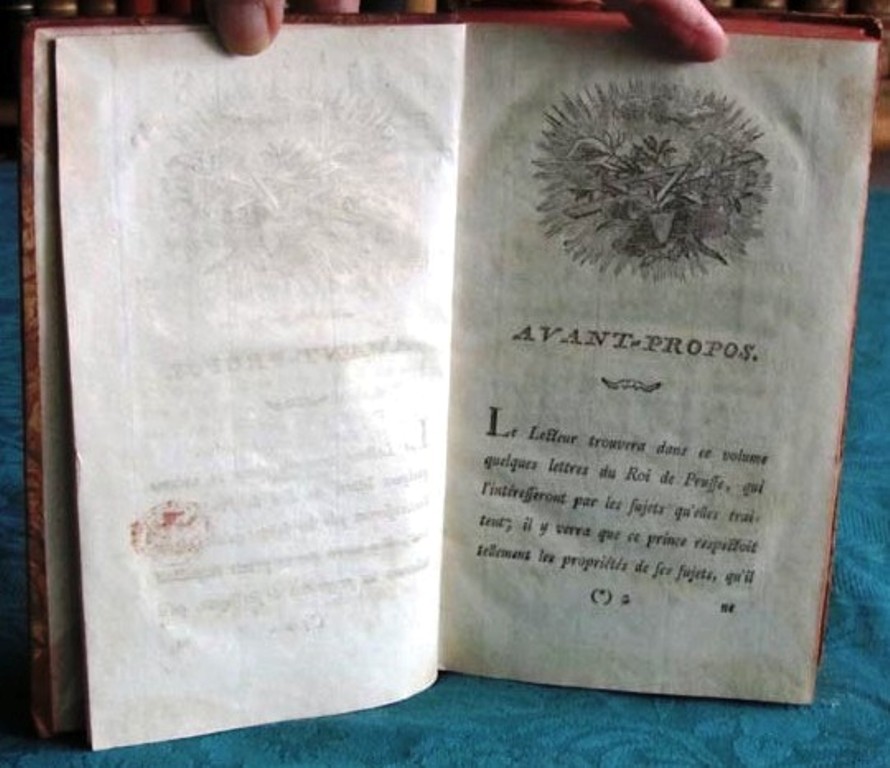 AVANT-PROPOS.
Le Lecteur trouvera dans ce volume
quelques lettres du Roi de Pruſſe, qui
l'intéreſſeront par les ſujets qu'elles trai-
tent; il y verra que ce prince reſpectoit
tellement les propriétés de ſes ſujets, qu'il
(*) 2
ne